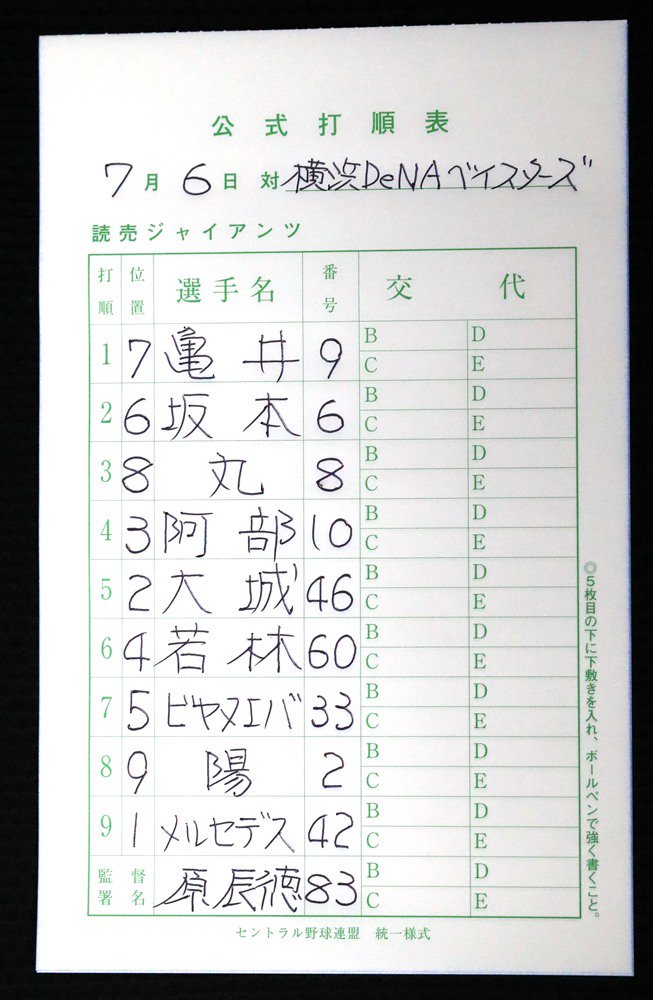 公式打順表
7月6日 対 横浜DeNAベイスターズ
読売ジャイアンツ
打順 位置 選手名 番号 交代
1 7 亀井 9 B D
C E
2 6 坂本 6 B D
C E
3 8 丸 8 B D
C E
4 3 阿部 10 B D
C E
5 2 大城 46 B D
C E
6 4 若林 60 B D
C E
7 5 ビヤヌエバ 33 B D
C E
8 9 陽 2 B D
C E
9 1 メルセデス 42 B D
C E
監督署名 原辰徳 83 B D
C E
セントラル野球連盟 統一様式
◎5枚目の下に下敷きを入れ、ボールペンで強く書くこと。